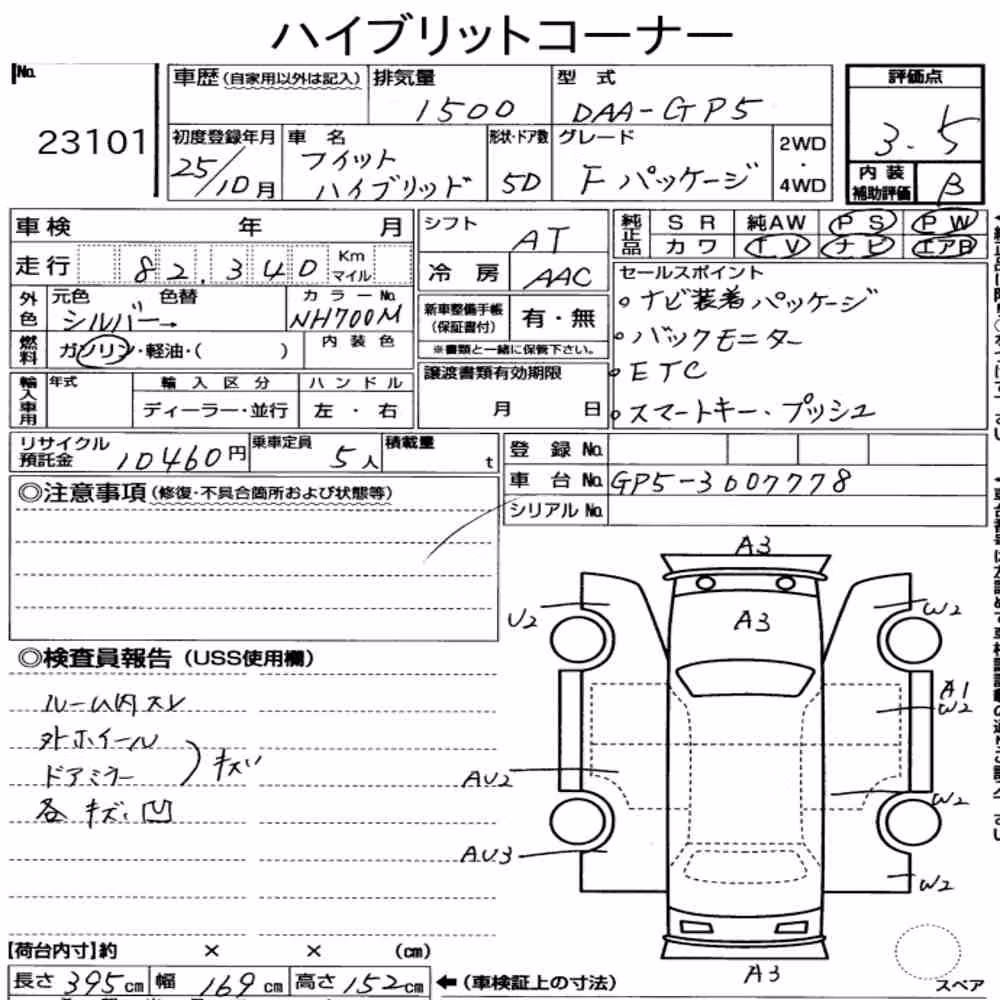 ハイブリットコーナー
No.
23101
車歴(自家用以外は記入)
排気量
1500
型 式
DAA-GP5
評価点
3.5
内装補助評価
B
初度登録年月
25/10月
車 名
フィット
ハイブリッド
形状・ドア数
5D
グレード
Fパッケージ
2WD
・
4WD
車検 年 月
走行 82.340 Km マイル
シフト
AT
冷 房
AAC
純正品
SR 純AW PS PW
カワ TV ナビ エアB
外色
元色 色替
シルバー→
カラーNo.
NH700M
燃料
ガソリン・軽油・( )
内装色
新車整備手帳
(保証書付)
有・無
※書類と一緒に保管下さい。
セールスポイント
○ナビ装着パッケージ
○バックモニター
○ETC
○スマートキー、プッシュ
輸入車用
年式
輸入区分
ディーラー・並行
ハンドル
左・右
譲渡書類有効期限
月 日
リサイクル預託金
10460円
乗車定員
5人
積載量
t
登 録 No.
車 台 No. GP5-3007778
シリアル No.
◎注意事項(修復・不具合箇所および状態等)
◎検査員報告(USS使用欄)
ルーム内スレ
外ホイール
ドアミラー
キズ
各キズ、凹
A3
A3
U2
W2
A1
W2
AU2
W2
AU3
W2
A3
スペア
【荷台内寸】約 × × (cm)
長さ 395cm 幅 169cm 高さ 152cm
←(車検証上の寸法)